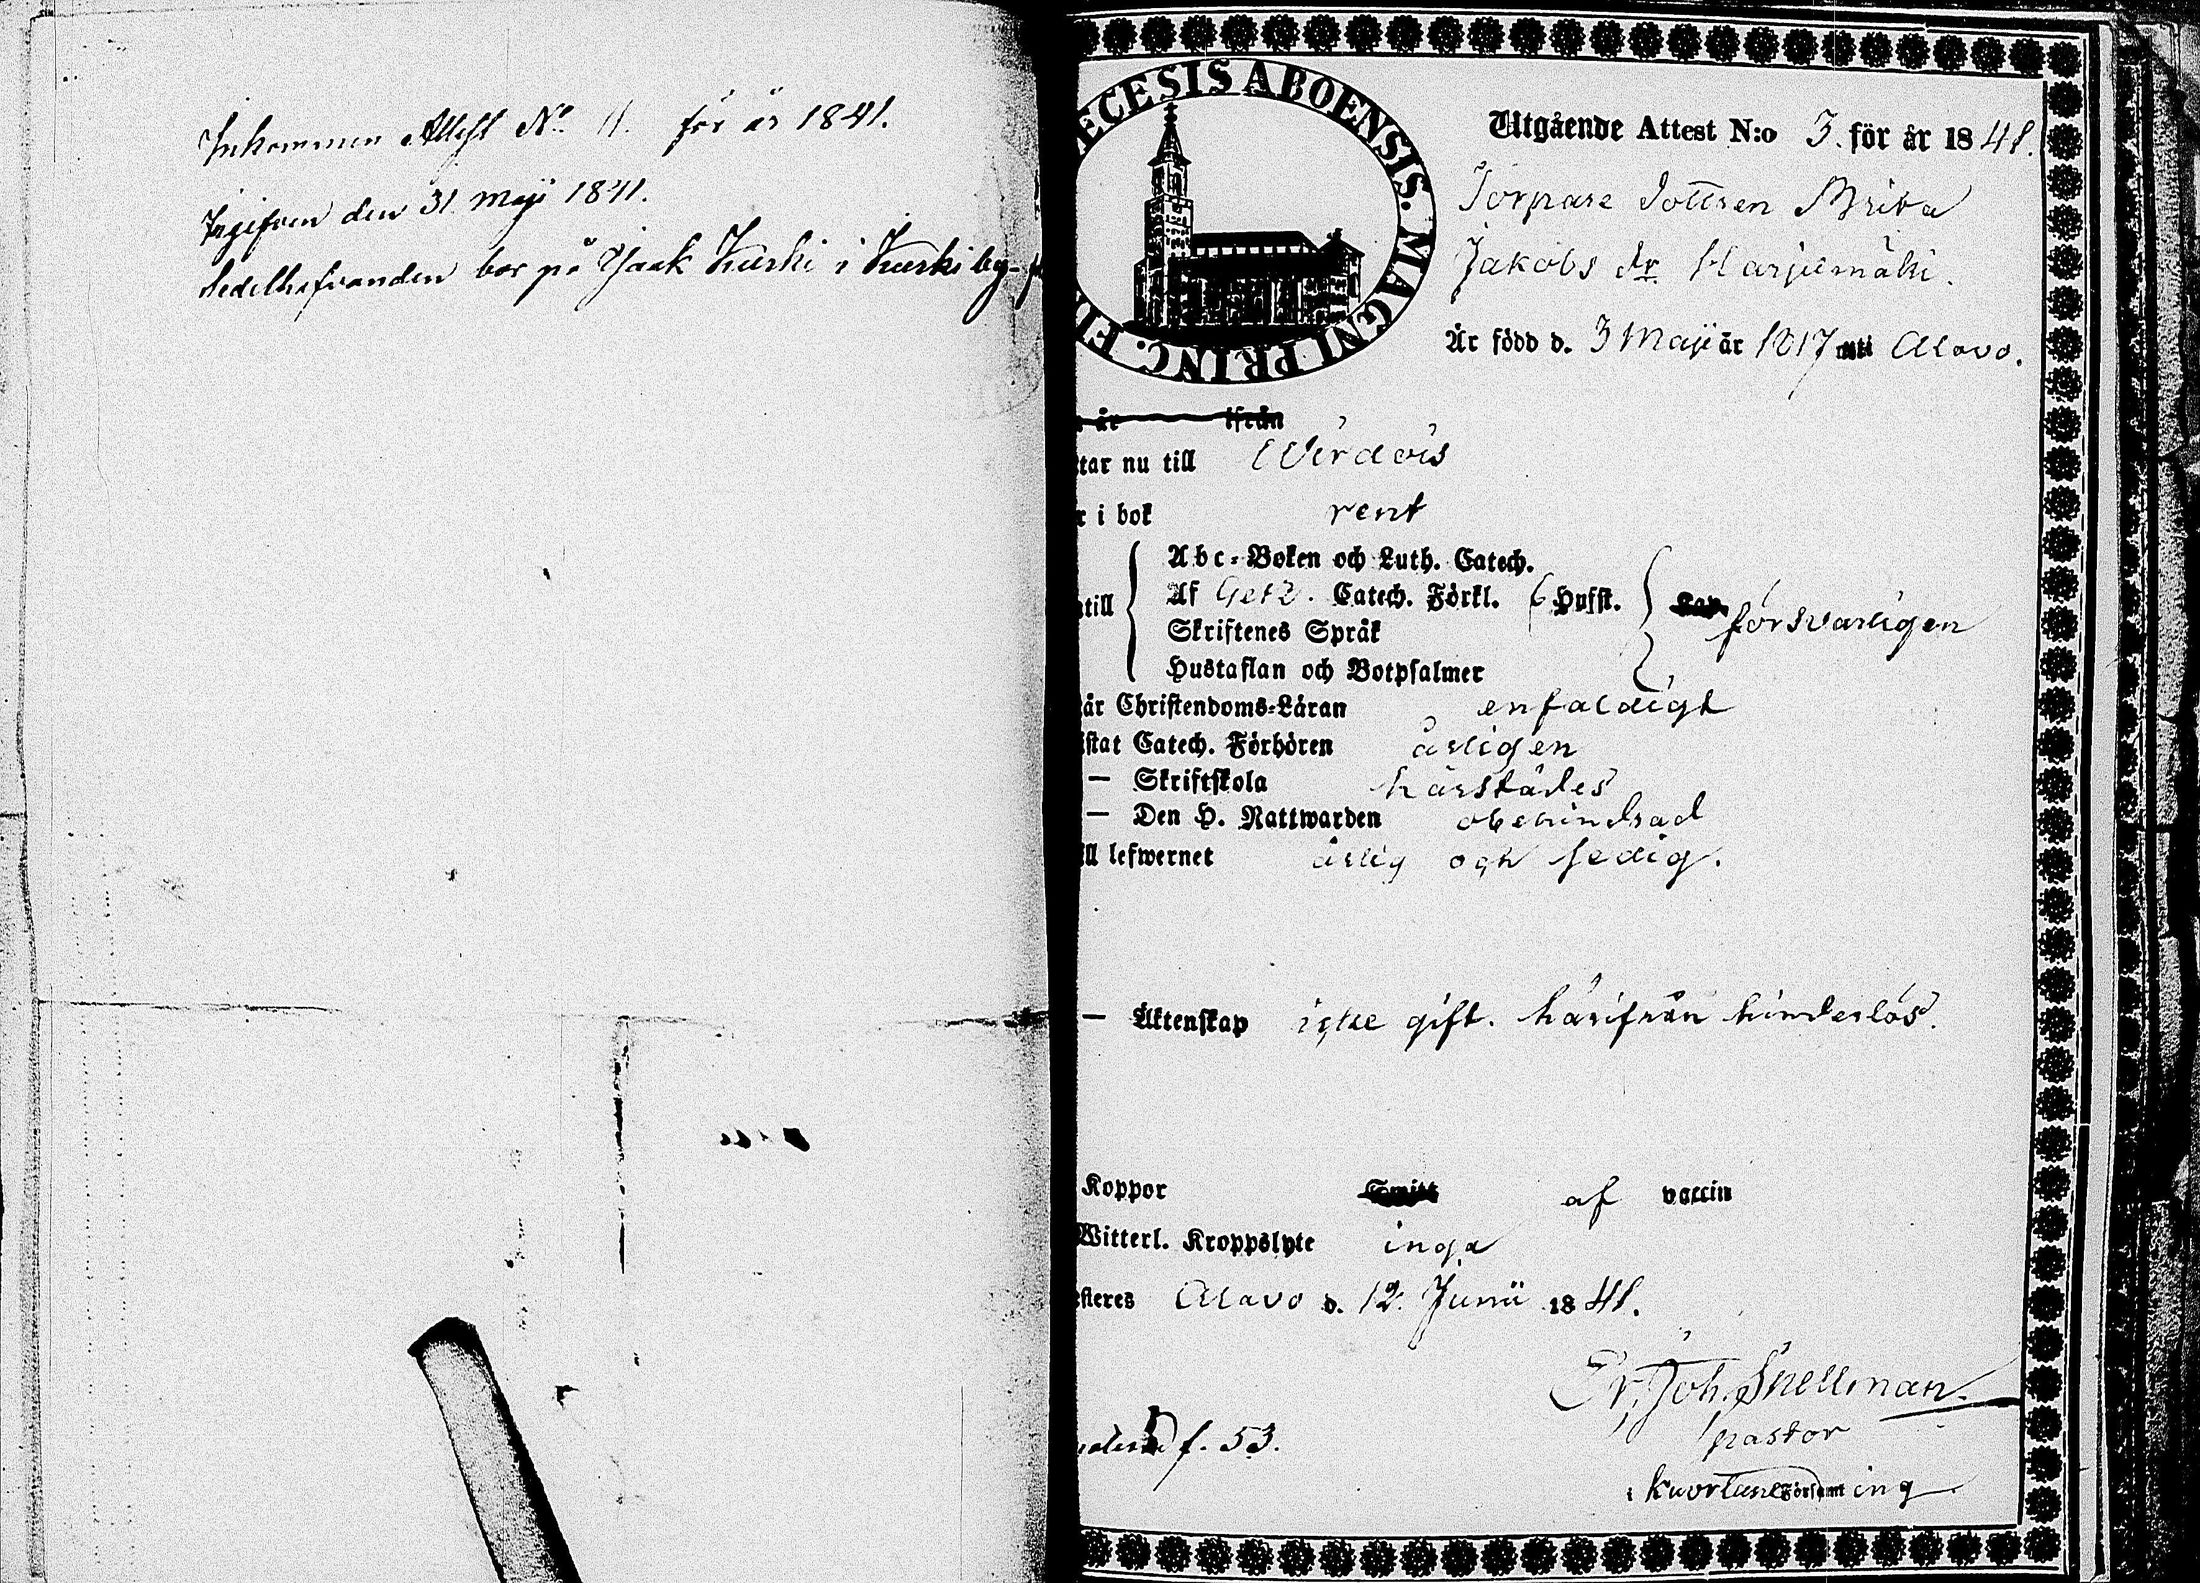 Inkommen Attest No 11. för år 1841.
Ingifven den 31 Maji 1841.
Sedelhafvanden bor på Isaak Kurki i Kurki by
ŒCESIS ABOENSIS. MAGNI PRINC. FI
Utgående Attest N:o 3. för år 1841.
Torpare Dottren Brita
Jakobs dr Harjumäki.
Är född d. 3 Maji år 1817 uti Alavo.
år ifrån
tar nu till Wirdois
r i bok rent
Abc-Boken och Luth. Catech.
till Af Getz. Catech. Förkl. 6 Hufst. försvarligen
Skriftenes Språk
Hustaflan och Botpsalmer
år Christendoms-Läran enfaldigt
istat Catech. Förhören årligen
— Skriftskola härstädes
— Den H. Nattwarden obehindrad
ill lefwernet ärlig och sedig.
— Äktenskap icke gift. härifrån hinderlös.
Koppor af vaccin
Witterl. Kroppslyte inga
esteres Alavo d. 12. Junii 1841.
Er. Joh. Snellman.
pastor
f. 53.
i Kuortane Församling